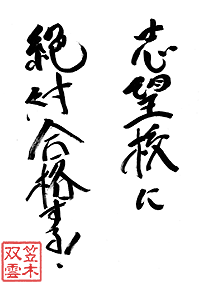 志望校に
絶対合格する!
笠木
双雲